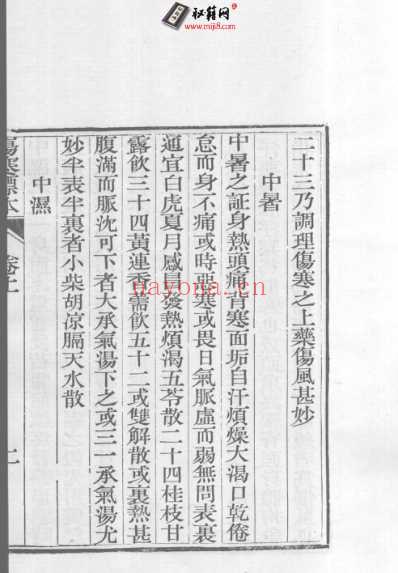 秘籍网
www.miji8.com
二十三乃調理傷寒之上藥傷風甚妙
中暑
中暑之証身熱頭痛背寒面垢自汗煩燥大渴口乾倦
怠而身不痛或時惡寒或畏日氣脈虛而弱無問表裏
通宜白虎夏月感暑發熱煩渴五苓散二十四桂枝甘
露飲三十四黃連香薷飲五十二或雙解散或裏熱甚
腹滿而脈沈可下者大承氣湯下之或三一承氣湯尤
妙半表半裏者小柴胡涼膈天水散
中濕
傷寒標本
卷上
nayona.cn